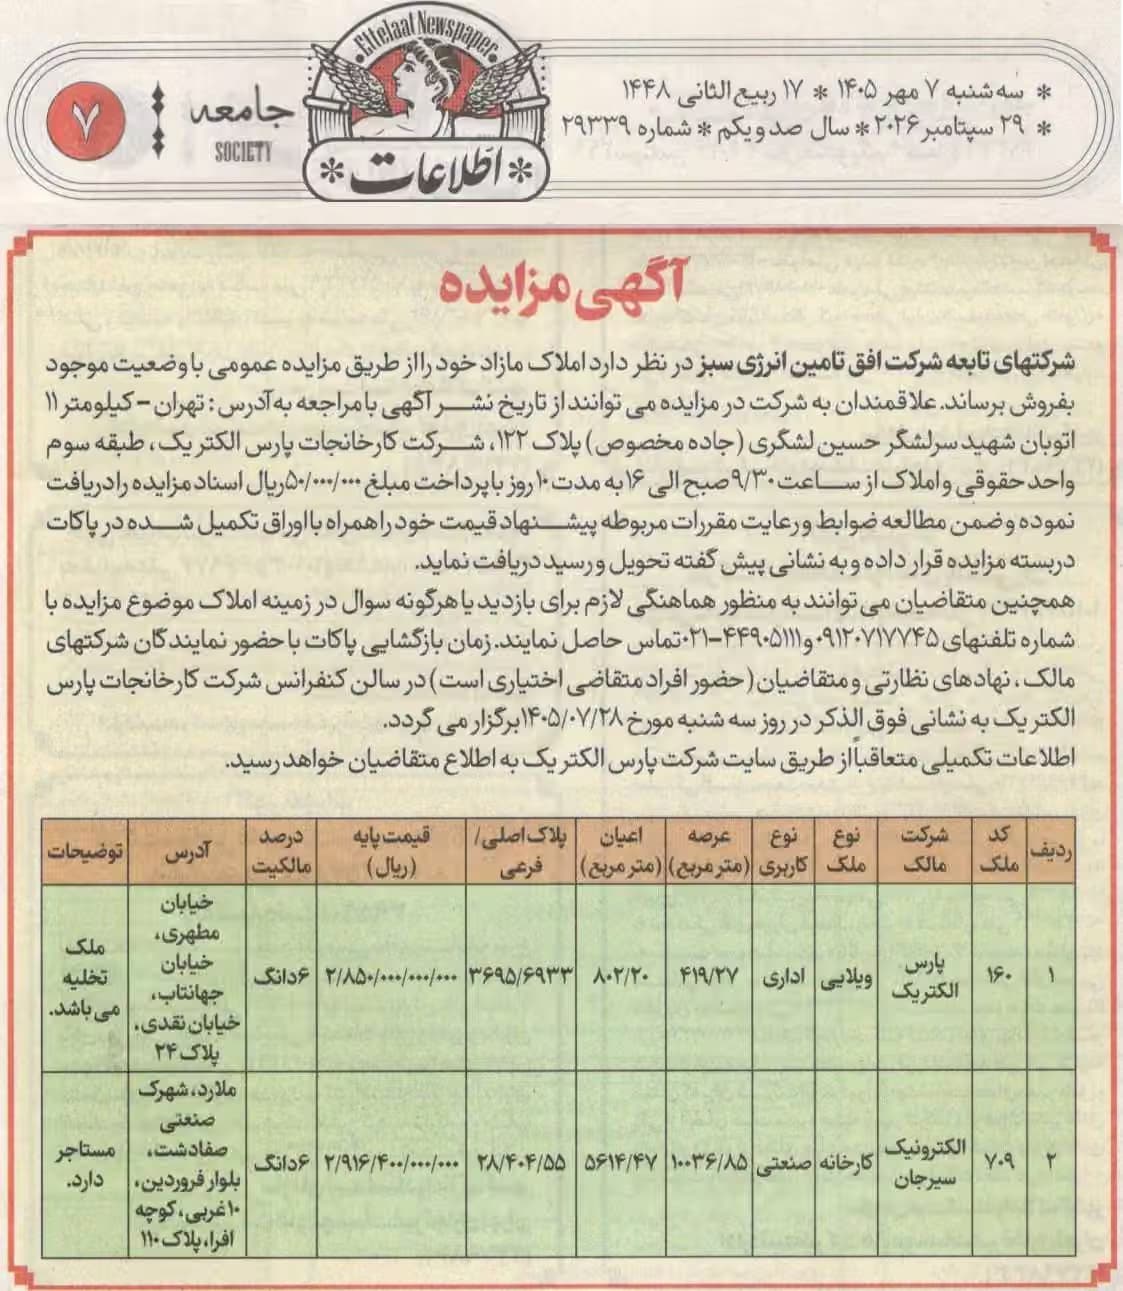 Ettelaat Newspaper
* اطلاعات *
* سه‌شنبه ۷ مهر ۱۴۰۵ * ۱۷ ربیع‌الثانی ۱۴۴۸
* ۲۹ سپتامبر ۲۰۲۶ * سال صد و یکم * شماره ۲۹۳۳۹
جامعه
SOCIETY
۷
آگهی مزایده
شرکتهای تابعه شرکت افق تامین انرژی سبز در نظر دارد املاک مازاد خود را از طریق مزایده عمومی با وضعیت موجود
بفروش برساند. علاقمندان به شرکت در مزایده می توانند از تاریخ نشر آگهی با مراجعه به آدرس : تهران - کیلومتر ۱۱
اتوبان شهید سرلشگر حسین لشگری (جاده مخصوص) پلاک ۱۲۲، شرکت کارخانجات پارس الکتریک ، طبقه سوم
واحد حقوقی و املاک از ساعت ۹/۳۰ صبح الی ۱۶ به مدت ۱۰ روز با پرداخت مبلغ ۵۰/۰۰۰/۰۰۰ ریال اسناد مزایده را دریافت
نموده و ضمن مطالعه ضوابط و رعایت مقررات مربوطه پیشنهاد قیمت خود را همراه با اوراق تکمیل شده در پاکات
دربسته مزایده قرار داده و به نشانی پیش گفته تحویل و رسید دریافت نماید.
همچنین متقاضیان می توانند به منظور هماهنگی لازم برای بازدید یا هرگونه سوال در زمینه املاک موضوع مزایده با
شماره تلفنهای ۰۹۱۲۰۷۱۷۷۴۵ و ۴۴۹۰۵۱۱۱-۰۲۱ تماس حاصل نمایند. زمان بازگشایی پاکات با حضور نمایندگان شرکتهای
مالک ، نهادهای نظارتی و متقاضیان (حضور افراد متقاضی اختیاری است) در سالن کنفرانس شرکت کارخانجات پارس
الکتریک به نشانی فوق الذکر در روز سه شنبه مورخ ۱۴۰۵/۰۷/۲۸ برگزار می گردد.
اطلاعات تکمیلی متعاقباً از طریق سایت شرکت پارس الکتریک به اطلاع متقاضیان خواهد رسید.
ردیف | کد ملک | شرکت مالک | نوع ملک | نوع کاربری | عرصه (متر مربع) | اعیان (متر مربع) | پلاک اصلی/ فرعی | قیمت پایه (ریال) | درصد مالکیت | آدرس | توضیحات
۱ | ۱۶۰ | پارس الکتریک | ویلایی | اداری | ۴۱۹/۲۷ | ۸۰۲/۲۰ | ۳۶۹۵/۶۹۳۳ | ۲/۸۵۰/۰۰۰/۰۰۰/۰۰۰ | ۶ دانگ | خیابان مطهری، خیابان جهانتاب، خیابان نقدی، پلاک ۲۴ | ملک تخلیه می باشد.
۲ | ۷۰۹ | الکترونیک سیرجان | کارخانه | صنعتی | ۱۰۰۳۶/۸۵ | ۵۶۱۴/۴۷ | ۲۸/۴۰۴/۵۵ | ۲/۹۱۶/۴۰۰/۰۰۰/۰۰۰ | ۶ دانگ | ملارد، شهرک صنعتی صفادشت، بلوار فروردین، ۱۰ غربی، کوچه افرا، پلاک ۱۱۰ | مستاجر دارد.